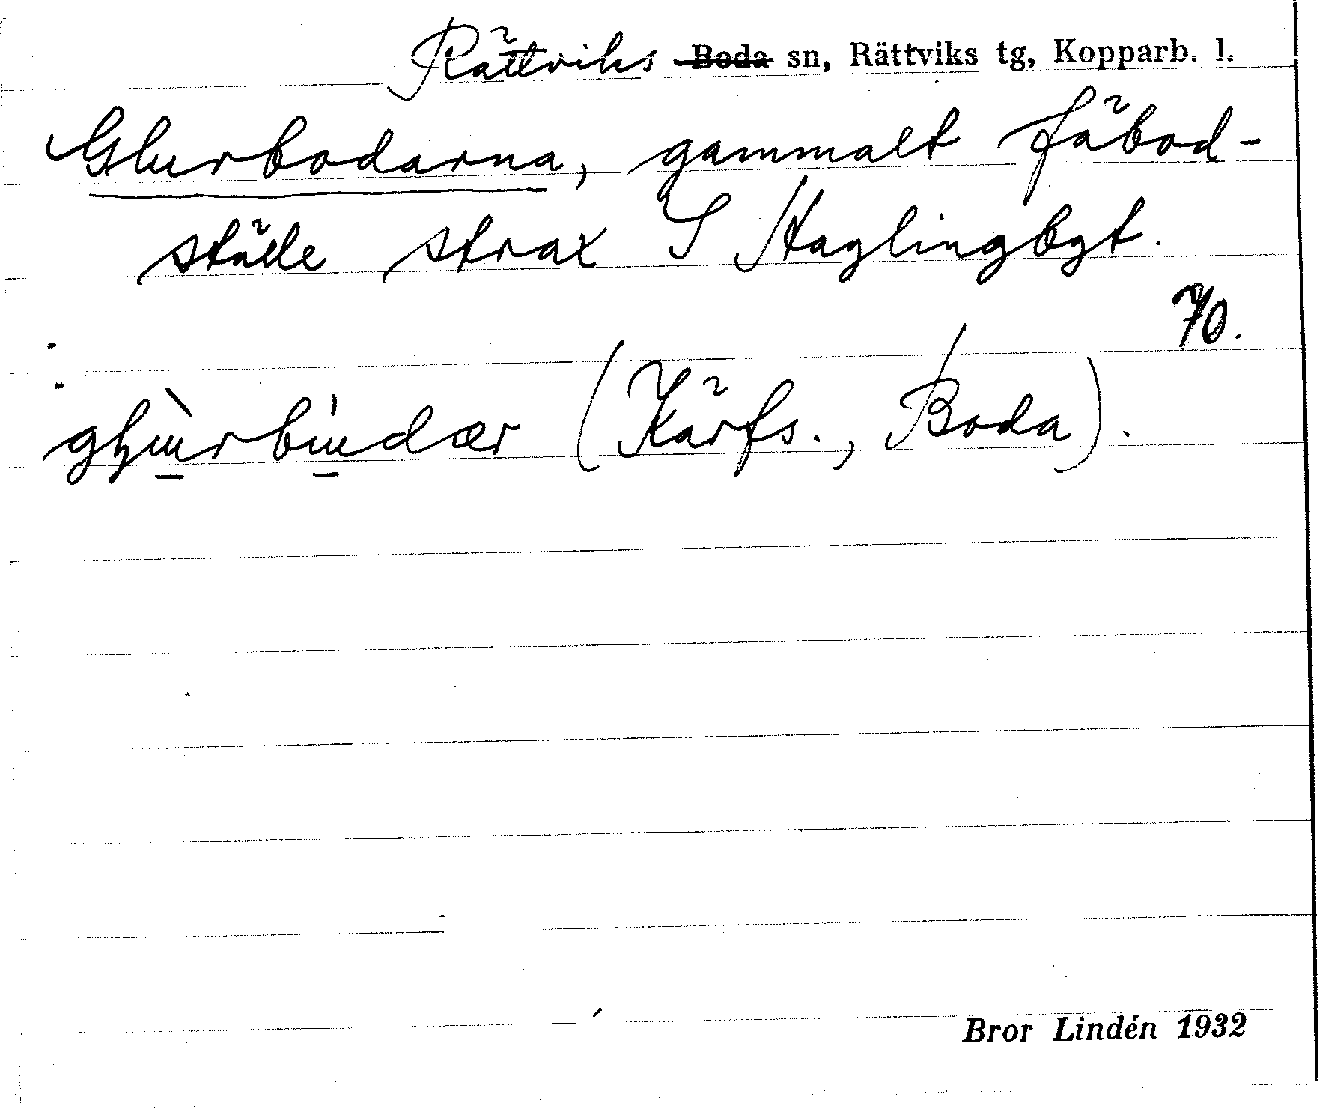 Rättviks ~~Boda~~ sn, Rättviks tg, Kopparb. l.
Glurbodarna, gammalt fäbod-
ställe strax S Haglingbgt.
70.
(Kärfs., Boda).
Bror Lindén 1932